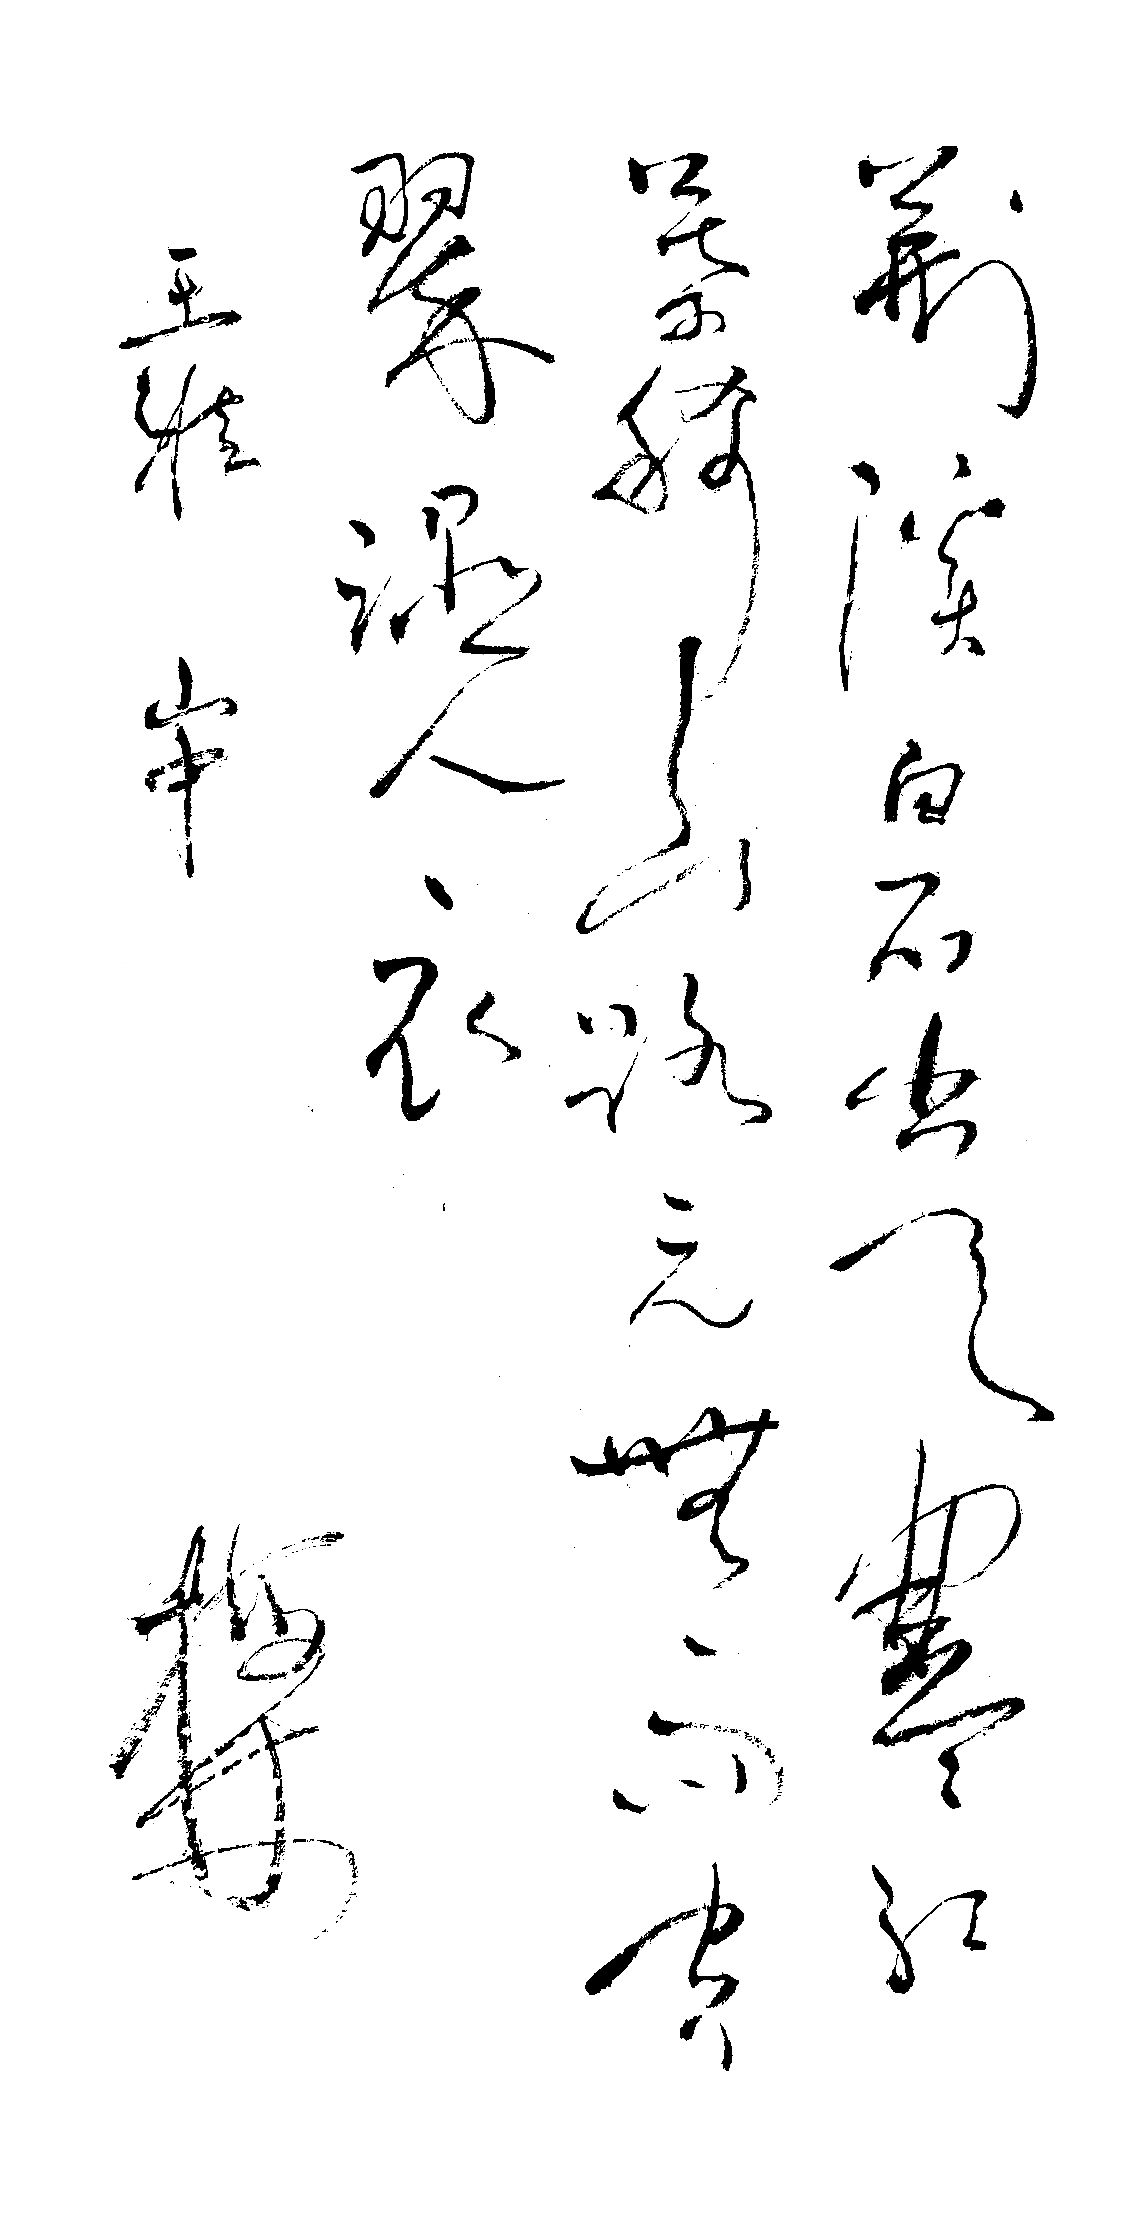 荊溪白石出天寒紅
葉稀山路元無雨空
翠濕人衣
王維 山中